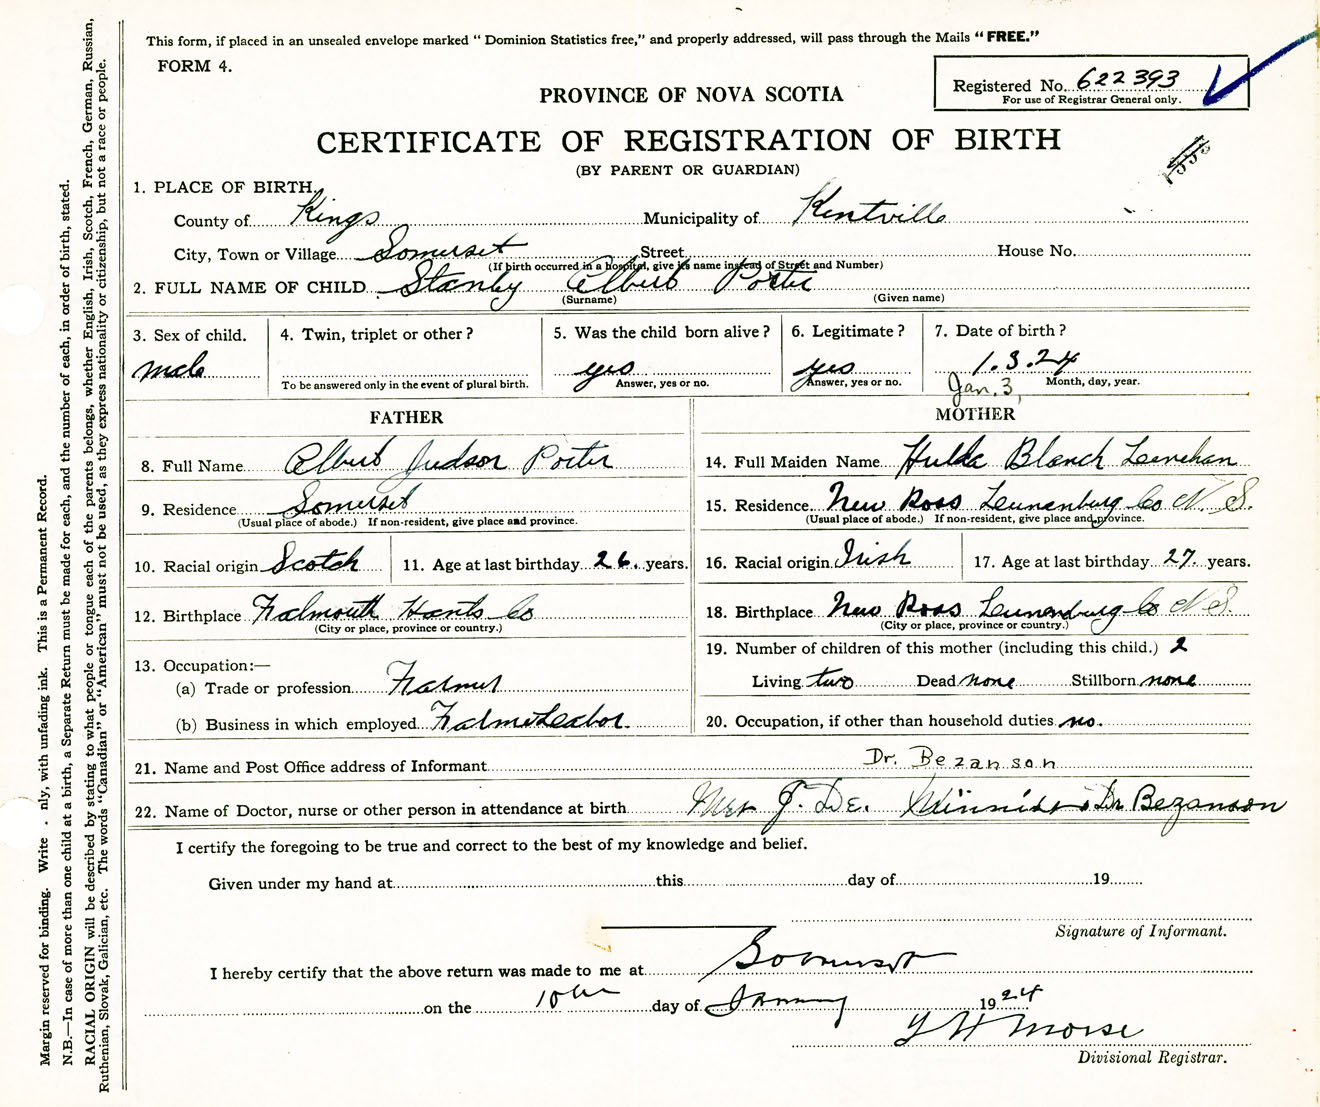 This form, if placed in an unsealed envelope marked " Dominion Statistics free," and properly addressed, will pass through the Mails " FREE."
FORM 4.
Registered No. 622393
For use of Registrar General only.
PROVINCE OF NOVA SCOTIA
CERTIFICATE OF REGISTRATION OF BIRTH
(BY PARENT OR GUARDIAN)
1. PLACE OF BIRTH.
County of Kings Municipality of Kentville
City, Town or Village Somerset Street House No.
(If birth occurred in a hospital, give its name instead of Street and Number)
2. FULL NAME OF CHILD Stanley Albert Porter
(Surname) (Given name)
3. Sex of child. 4. Twin, triplet or other ? 5. Was the child born alive ? 6. Legitimate ? 7. Date of birth ?
male yes yes 1.3.24
To be answered only in the event of plural birth. Answer, yes or no. Answer, yes or no. Jan. 3, Month, day, year.
FATHER MOTHER
8. Full Name Albert Judson Porter 14. Full Maiden Name Hulda Blanch Lenehan
9. Residence Somerset 15. Residence New Ross Leunenburg Co N. S.
(Usual place of abode.) If non-resident, give place and province. (Usual place of abode.) If non-resident, give place and province.
10. Racial origin Scotch 11. Age at last birthday 26. years. 16. Racial origin Irish 17. Age at last birthday 27. years.
12. Birthplace Falmouth Hants Co 18. Birthplace New Ross Leunenburg Co N S.
(City or place, province or country.) (City or place, province or country.)
13. Occupation:— 19. Number of children of this mother (including this child.) 2
(a) Trade or profession Farmer Living two Dead none Stillborn none
(b) Business in which employed Farm Leabor 20. Occupation, if other than household duties no.
21. Name and Post Office address of Informant Dr. Bezanson
22. Name of Doctor, nurse or other person in attendance at birth Mrs J. Dr Bezanson
I certify the foregoing to be true and correct to the best of my knowledge and belief.
Given under my hand at this day of 19
Signature of Informant.
I hereby certify that the above return was made to me at Somerset
on the 10th day of January 1924
Morse
Divisional Registrar.
Margin reserved for binding. Write nly, with unfading ink. This is a Permanent Record.
N.B.—In case of more than one child at a birth, a Separate Return must be made for each, and the number of each, in order of birth, stated.
RACIAL ORIGIN will be described by stating to what people or tongue each of the parents belongs, whether English, Irish, Scotch, French, German, Russian,
Ruthenian, Slovak, Galician, etc. The words "Canadian" or "American" must not be used, as they express nationality or citizenship, but not a race or people.